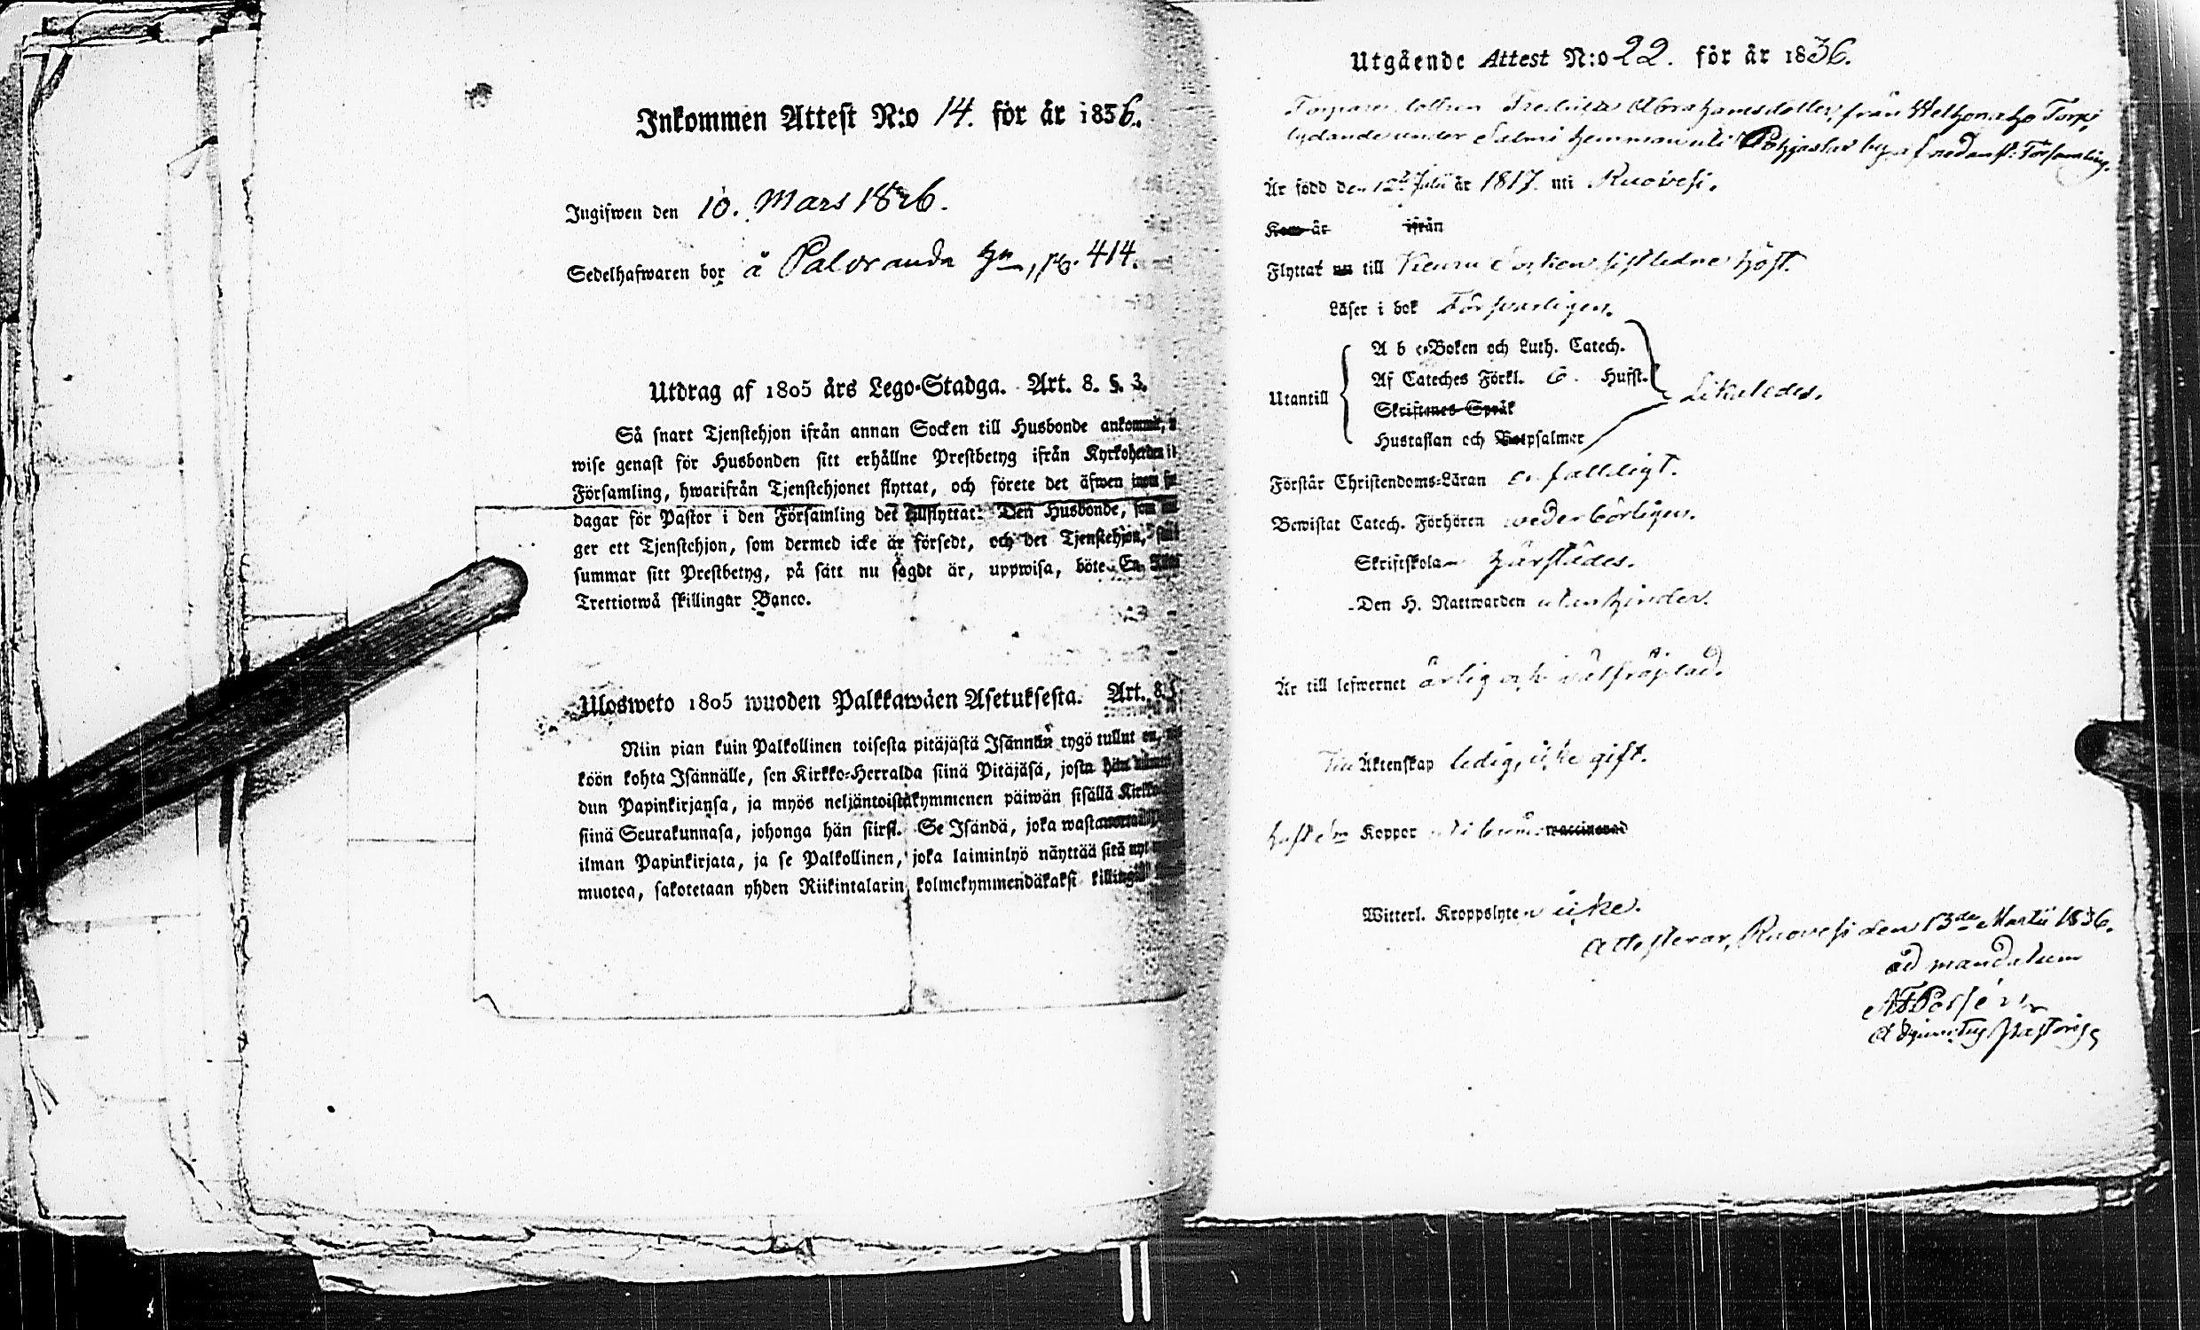 Inkommen Attest N:o 14. för år 1836.
Ingifwen den 10. Mars 1836.
Sedelhafwaren bor å Paloranda Hn, p. 414.
Utdrag af 1805 års Lego-Stadga. Art. 8. §. 3.
Så snart Tjenstehjon ifrån annan Socken till Husbonde ankommit,
wise genast för Husbonden sitt erhållne Prestbetyg ifrån Kyrkoherden i
Församling, hwarifrån Tjenstehjonet flyttat, och förete det äfwen inom
dagar för Pastor i den Församling det tillflyttat: Den Husbonde, som
ger ett Tjenstehjon, som dermed icke är försedt, och det Tjenstehjon,
summar sitt Prestbetyg, på sätt nu sagdt är, uppwisa, böte En
Trettiotwå skillingar Banco.
Ulosweto 1805 wuoden Palkkawäen Asetuksesta. Art. 8.
Niin pian kuin Palkollinen toisesta pitäjästä Isännän tygö tullut on,
köön kohta Isännälle, sen Kirkko-Herralda siinä Pitäjäsä, josta hän
dun Papinkirjansa, ja myös neljäntoistakymmenen päiwän sisällä
siinä Seurakunnasa, johonga hän siirsi. Se Isändä, joka
ilman Papinkirjata, ja se Palkollinen, joka laiminlyö näyttää sitä nyt
muotoa, sakotetaan yhden Riikintalarin kolmekymmendäkaksi killingiä
Utgående Attest N:o 22. för år 1836.
Torpare dottren Fredrika Abrahamsdotter, från Torp,
lydande under Salmi hemman uti Pohjaslax by af nedanst: Församling.
Är född den 12te Julii år 1817. uti Ruovesi.
Kom år ifrån
Flyttat nu till Keuru Socken sistledne höst.
Läser i bok Försvarligen.
Utantill
A b c-Boken och Luth. Catech.
Af Cateches Förkl. 6. Hufst.
Skriftenes Språk
Hustaflan och Botpsalmer
Likaledes.
Förstår Christendoms-Läran enfalldigt.
Bewistat Catech. Förhören wederbörligen.
Skriftskolan härstädes.
Den H. Nattwarden utan hinder.
Är till lefwernet ärlig och wälfräjdad.
Till Äktenskap ledig, icke gift.
Haft Koppor vaccinerad
Witterl. Kroppslyten icke.
Attesterar, Ruovesi den 13de Martii 1836.
ad mandatum
Adjunctus Pastoris